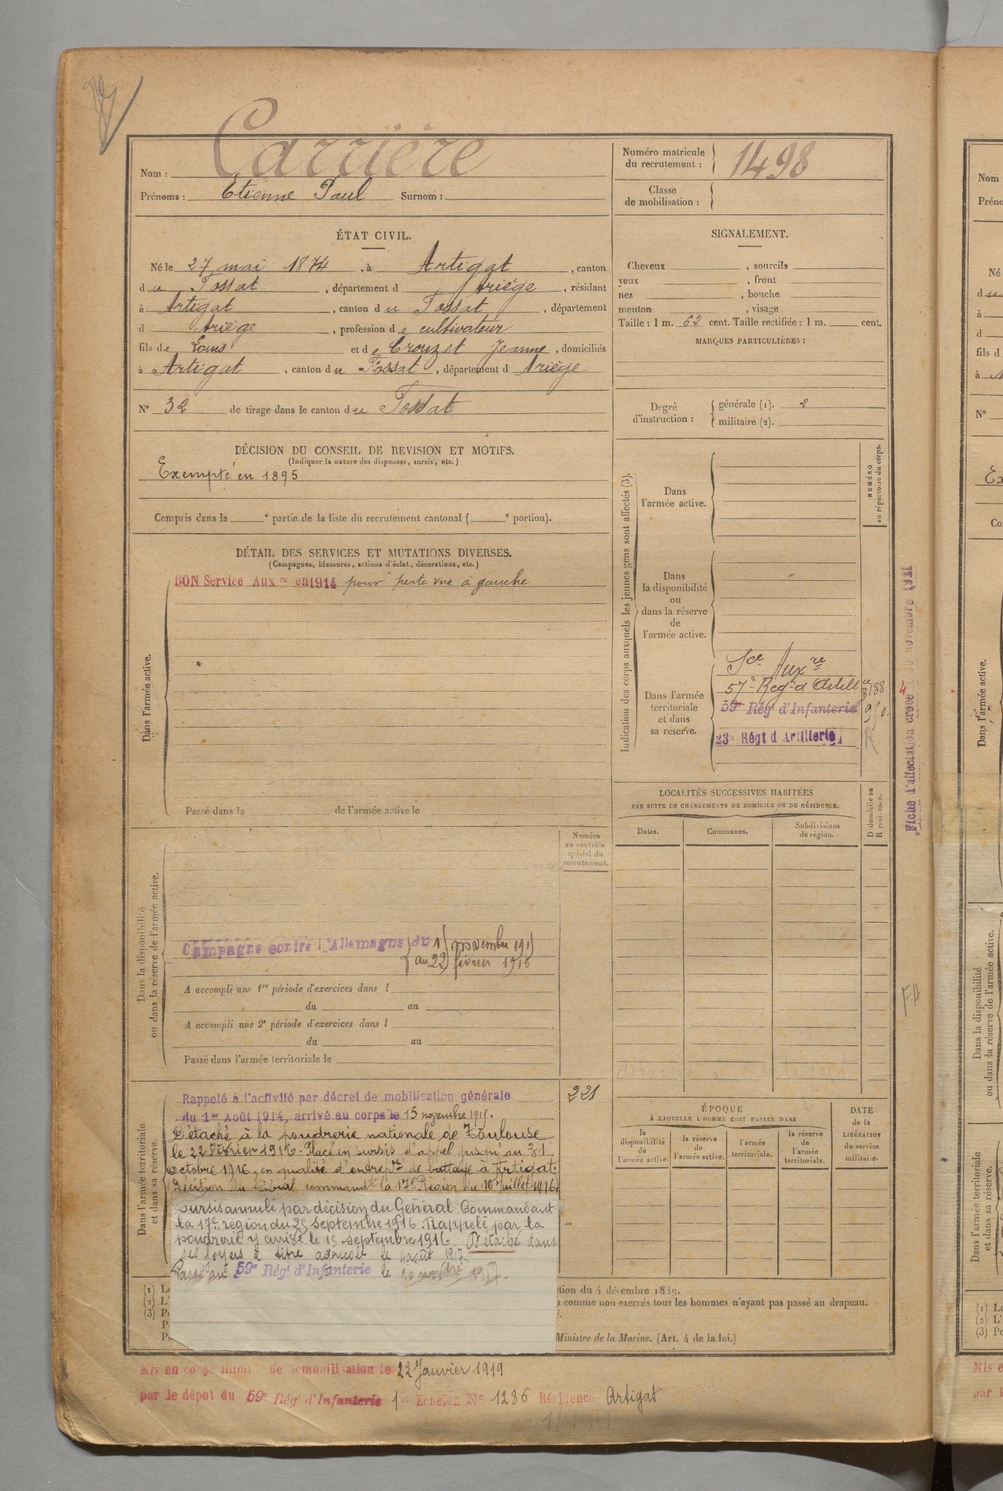 Carrière
Nom :
Prénoms : Etienne Paul Surnom :
Numéro matricule
du recrutement : 1498
Classe
de mobilisation :
ÉTAT CIVIL.
Né le 27 mai 1874, à Artigat, canton
du Fossat, département d Ariège, résidant
à Artigat, canton du Fossat, département
d Ariège, profession de cultivateur
fils de Louis et de Crouzet Jeanne, domiciliés
à Artigat, canton du Fossat, département d Ariège
N° 32 de tirage dans le canton du Fossat
SIGNALEMENT.
Cheveux , sourcils
yeux , front
nez , bouche
menton , visage
Taille : 1 m. 62 cent. Taille rectifiée : 1 m. cent.
MARQUES PARTICULIÈRES :
Degré
d'instruction :
générale (1). 2
militaire (2).
DÉCISION DU CONSEIL DE REVISION ET MOTIFS.
(Indiquer la nature des dispenses, sursis, etc.)
Exempté en 1895
Compris dans la e partie de la liste du recrutement cantonal ( e portion).
DÉTAIL DES SERVICES ET MUTATIONS DIVERSES.
(Campagnes, blessures, actions d'éclat, décorations, etc.)
BON Service Aux re en 1914 pour perte vue à gauche
Dans l'armée active.
Passé dans la de l'armée active le
Indication des corps auxquels les jeunes gens sont affectés (3).
NUMÉRO
au répertoire du corps.
Dans
l'armée active.
Dans
la disponibilité
ou
dans la réserve
de
l'armée active.
Dans l'armée
territoriale
et dans
sa réserve.
Sce Auxre
57e Regt d'Artill
59e Régt d'Infanterie
23e Régt d'Artillerie
Fiche d'affectation créée novembre 1931
FM
LOCALITÉS SUCCESSIVES HABITÉES
PAR SUITE DE CHANGEMENTS DE DOMICILE OU DE RÉSIDENCE.
D domicile ou
R résidence.
Dates.
Communes.
Subdivisions
de région.
Numéro
au contrôle
spécial du
recrutement.
Dans la disponibilité
ou dans la réserve de l'armée active.
Campagne contre l'Allemagne du novembre
au 22 février 1916
A accompli une 1re période d'exercices dans l
du au
A accompli une 2e période d'exercices dans l
du au
Passé dans l'armée territoriale le
Dans l'armée territoriale
et dans sa réserve.
221
Rappelé à l'activité par décret de mobilisation générale
du 1er Août 1914, arrivé au corps le 15 novembre 1915.
Détaché à la poudrerie nationale de Toulouse
le 22 Février 1916. Placé en sursis d'appel jusqu'au 31
Octobre 1916, en qualité d'entrepr de battage à Artigat.
Décision du Général commandt la 17e Région du 10 Juillet 1916.
Sursis annulé par décision du Général Commandant
la 17e région du 25 septembre 1916. Rappelé par la
poudrerie y arrivé le 15 septembre 1916. Détaché dans
ses foyers à titre agricole le août 1917.
Passé au 59e Régt d'Infanterie le
ÉPOQUE
À LAQUELLE L'HOMME DOIT PASSER DANS
la
disponibilité
de
l'armée active.
la réserve
de
l'armée active.
l'armée
territoriale.
la réserve
de l'armée
territoriale.
DATE
de la
LIBÉRATION
du service
militaire.
(1)
(2)
(3)
tion du 4 décembre 1889.
comme non exercés tous les hommes n'ayant pas passé au drapeau.
Ministre de la Marine. (Art. 4 de la loi.)
Mis en congé de démobilisation le 22 Janvier 1919
par le dépôt du 59e Régt d'Infanterie Echelon N° 1286 Résidence Artigat